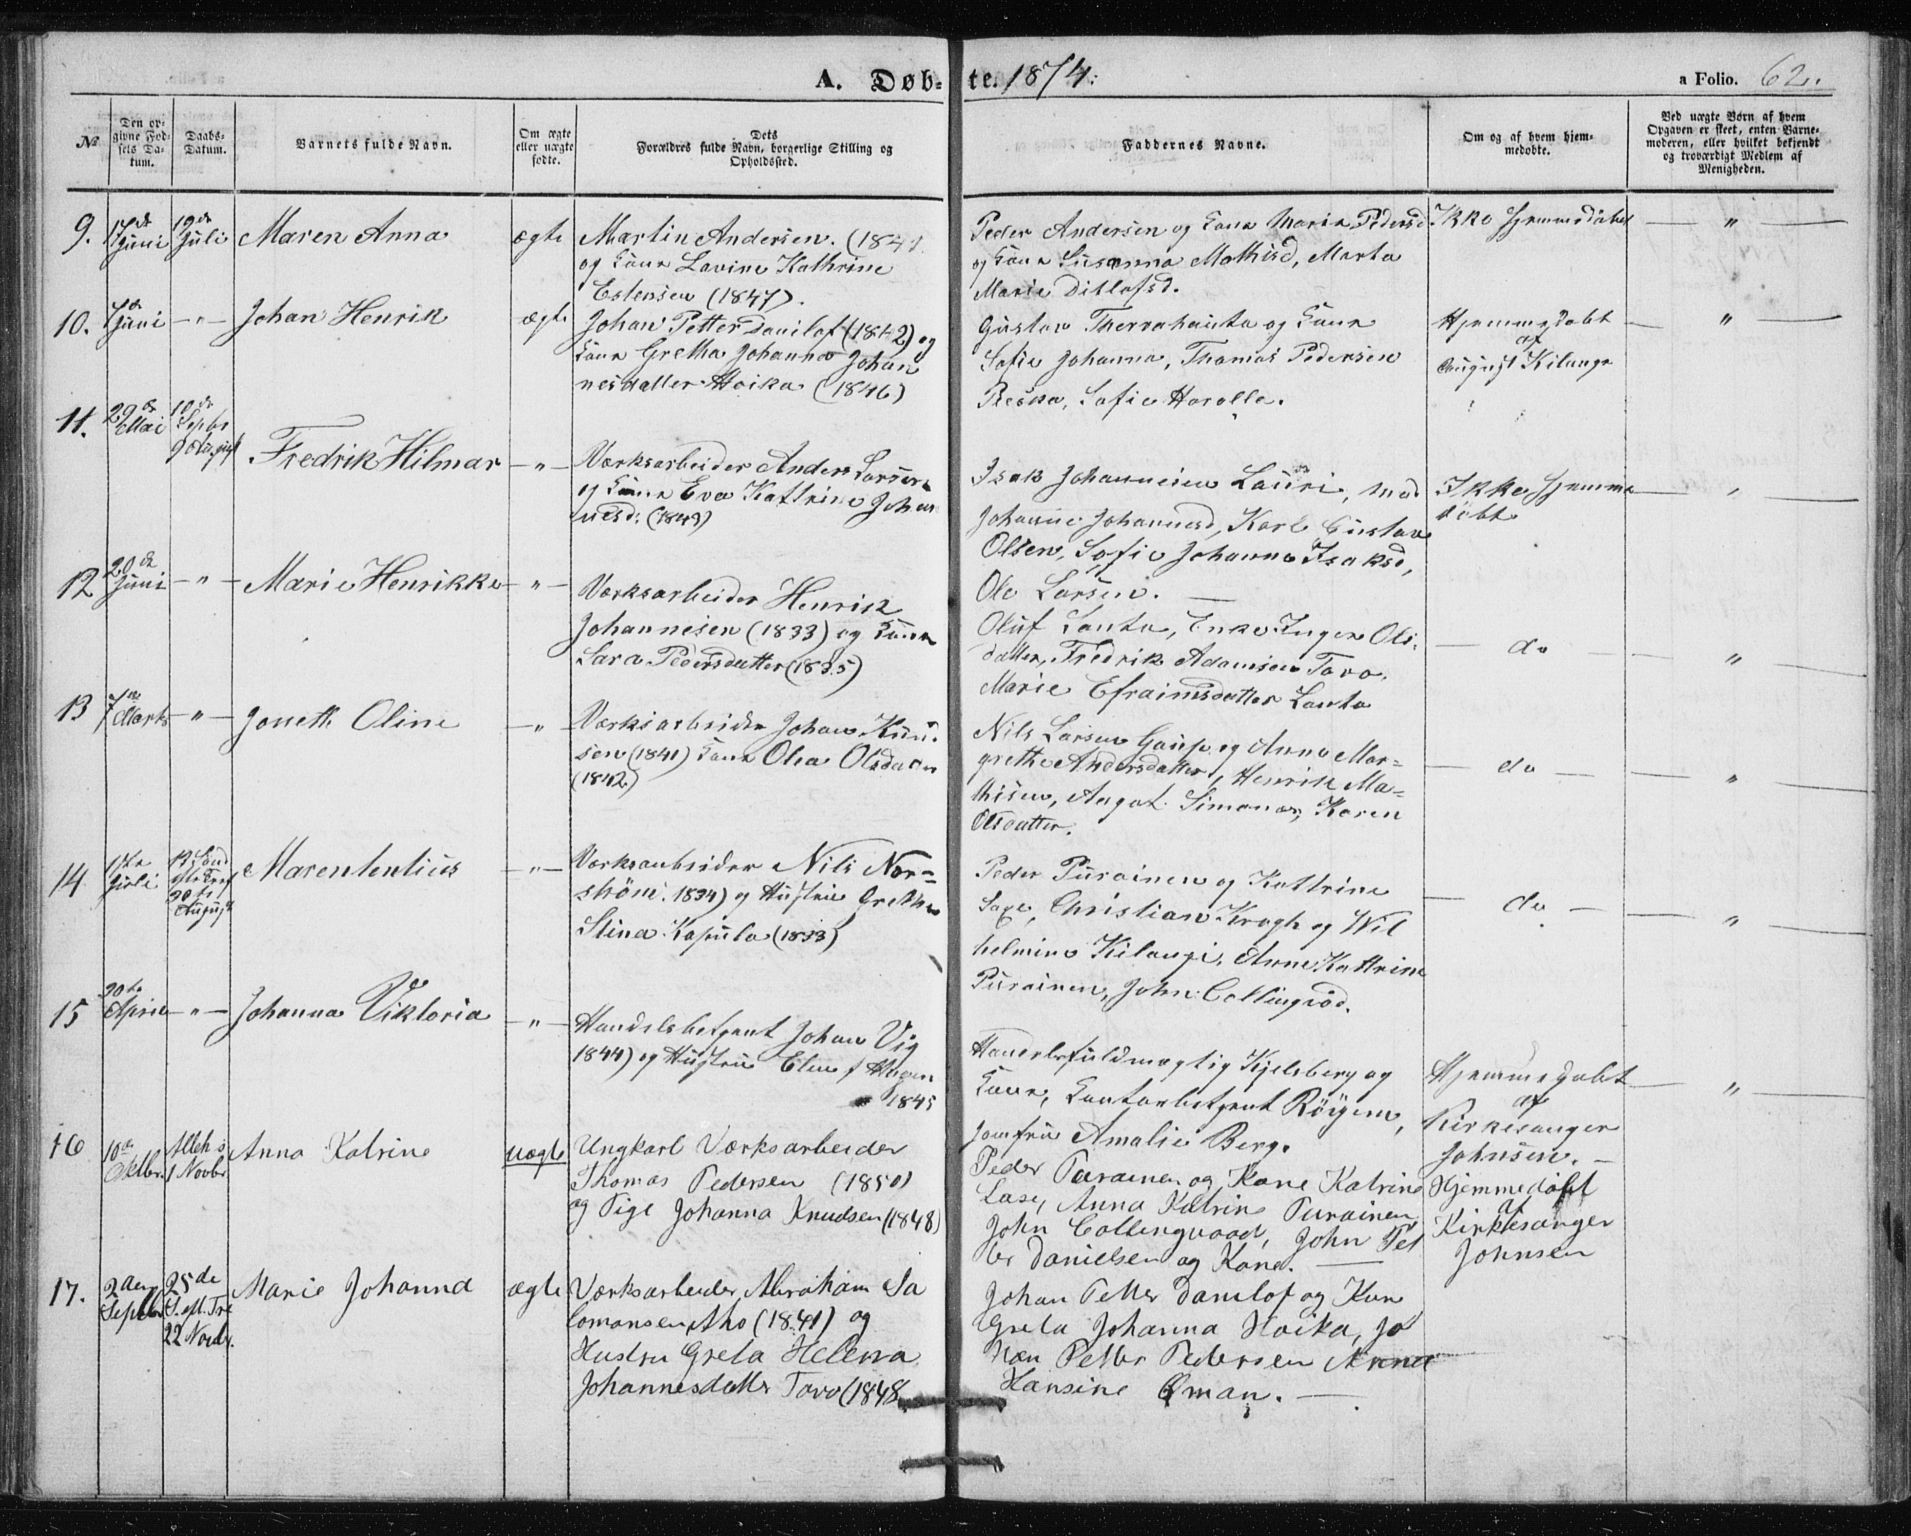 A. Døbte. 1874.
a Folio. 62.
№
Den opgivne Fødsels Datum.
Daabs-Datum.
Barnets fulde Navn.
Om ægte eller uægte fødte.
Dets Forældres fulde Navn, borgerlige Stilling og Opholdssted.
Faddernes Navne.
Om og af hvem hjemmedøbte.
Ved uægte Børn af hvem Opgaven er skeet, enten Barnemoderen, eller hvilket bekjendt og troværdigt Medlem af Menigheden.
9. 17de Juni 19de Juli Maren Anna ægte
Martin Andersen. (184
og Kone Lavine Kathrine
Estensen (1847).
Peder Andersen og Kone Maria Pedersd
og Kone Susanna Mathisd, Marta
Marie Ditlofsd.
Ikke Hjemmedøbt — " —
10. 7de Juni — " — Johan Henrik ægte
Johan Petter Danilof (1842) og
Kone Gretha Johanna Johan
nesdatter Hoika (1846)
Gustav Therrahauta og Kone
Sofie Johanna, Thomas Pedersen
Peska, Sofie Harolla.
Hjemmedøbt
af
August Kilange — " —
11. 29de Mai 10de Septbr
9 August
Fredrik Hilmar — " —
Værksarbeider Anders Larsen
og Kone Eva Kathrine Johan
nesd: (1849)
Isak Johannesen Lauri, med
Johanne Johannesd, Karl Gustav
Olsen, Sofie Johanna Isaksd,
Ole Larsen. —
Ikke Hjemme
døbt — " —
12 20de Juni — " — Marie Henrikke — " —
Værksarbeider Henrik
Johannesen (1833) og Kone
Sara Pedersdatter (1835)
Oluf Lanto, Enke Inger Ols-
datter, Fredrik Adamsen Tavo,
Marie Efraimsdatter Lanto
— do — — " —
13 7de Marts — " — Joneth Oline — " —
Værksarbeider Johan Knu-
sen (1841) Kone Olea Olsdatter
(1842)
Nils Larsen Gaup og Anna Mar-
grethe Andersdatter, Henrik Ma-
thisen, Aagot Simonsen, Karen
Olsdatter.
— do — — " —
14 Juli 13 Sønd
efter Tref
30te
August
Marententius — " —
Værksarbeider Nils Nor-
strøm. 1834) og Hustru Grethe
Stina Kapula (1833)
Peder Purainen og Kathrine
Saxe, Christian Krogh og Wil
helmine Kilangi, Anne Kathrine
Purainen, John Collingvod.
— do — — " —
15 30te April — " — Johanna Viktoria — " —
Handelsbetjent Johan Vig
1844) og Hustru Eline f Hagen
1845
Handelsfuldmægtig Kjelsberg og
Kone, Kontorbetjent Rösgenn,
Jomfru Amalie Berg.
Hjemmedøbt
af
Kirkesanger
Johnsen. — " —
16 10de Oktbr. Alleh s
1 Novbr.
Anna Katrine uægte
Ungkarl Værksarbeider
Thomas Pedersen (1850)
og Pige Johanna Knudsen (1848)
Peder Purainen og Kone Katrine
Lase, Anna Katrine Purainen,
John Collingvood, John Pet
ter Danielsen og Kone. —
Hjemmedøbt
af
Kirkesanger
Johnsen
17. 2den Septbr 25de
S. eft. Tre
22 Novbr.
Marie Johanna ægte
Værksarbeider Abraham Sa
lomonsen Aho (1841) og
Hustru Greta Helena
Johannesdatter Tavo (1848
Johan Petter Danilof og Kone
Greta Johanna Hoika, Jo
han Petter Pedersen Anna
Hansine Öman. —